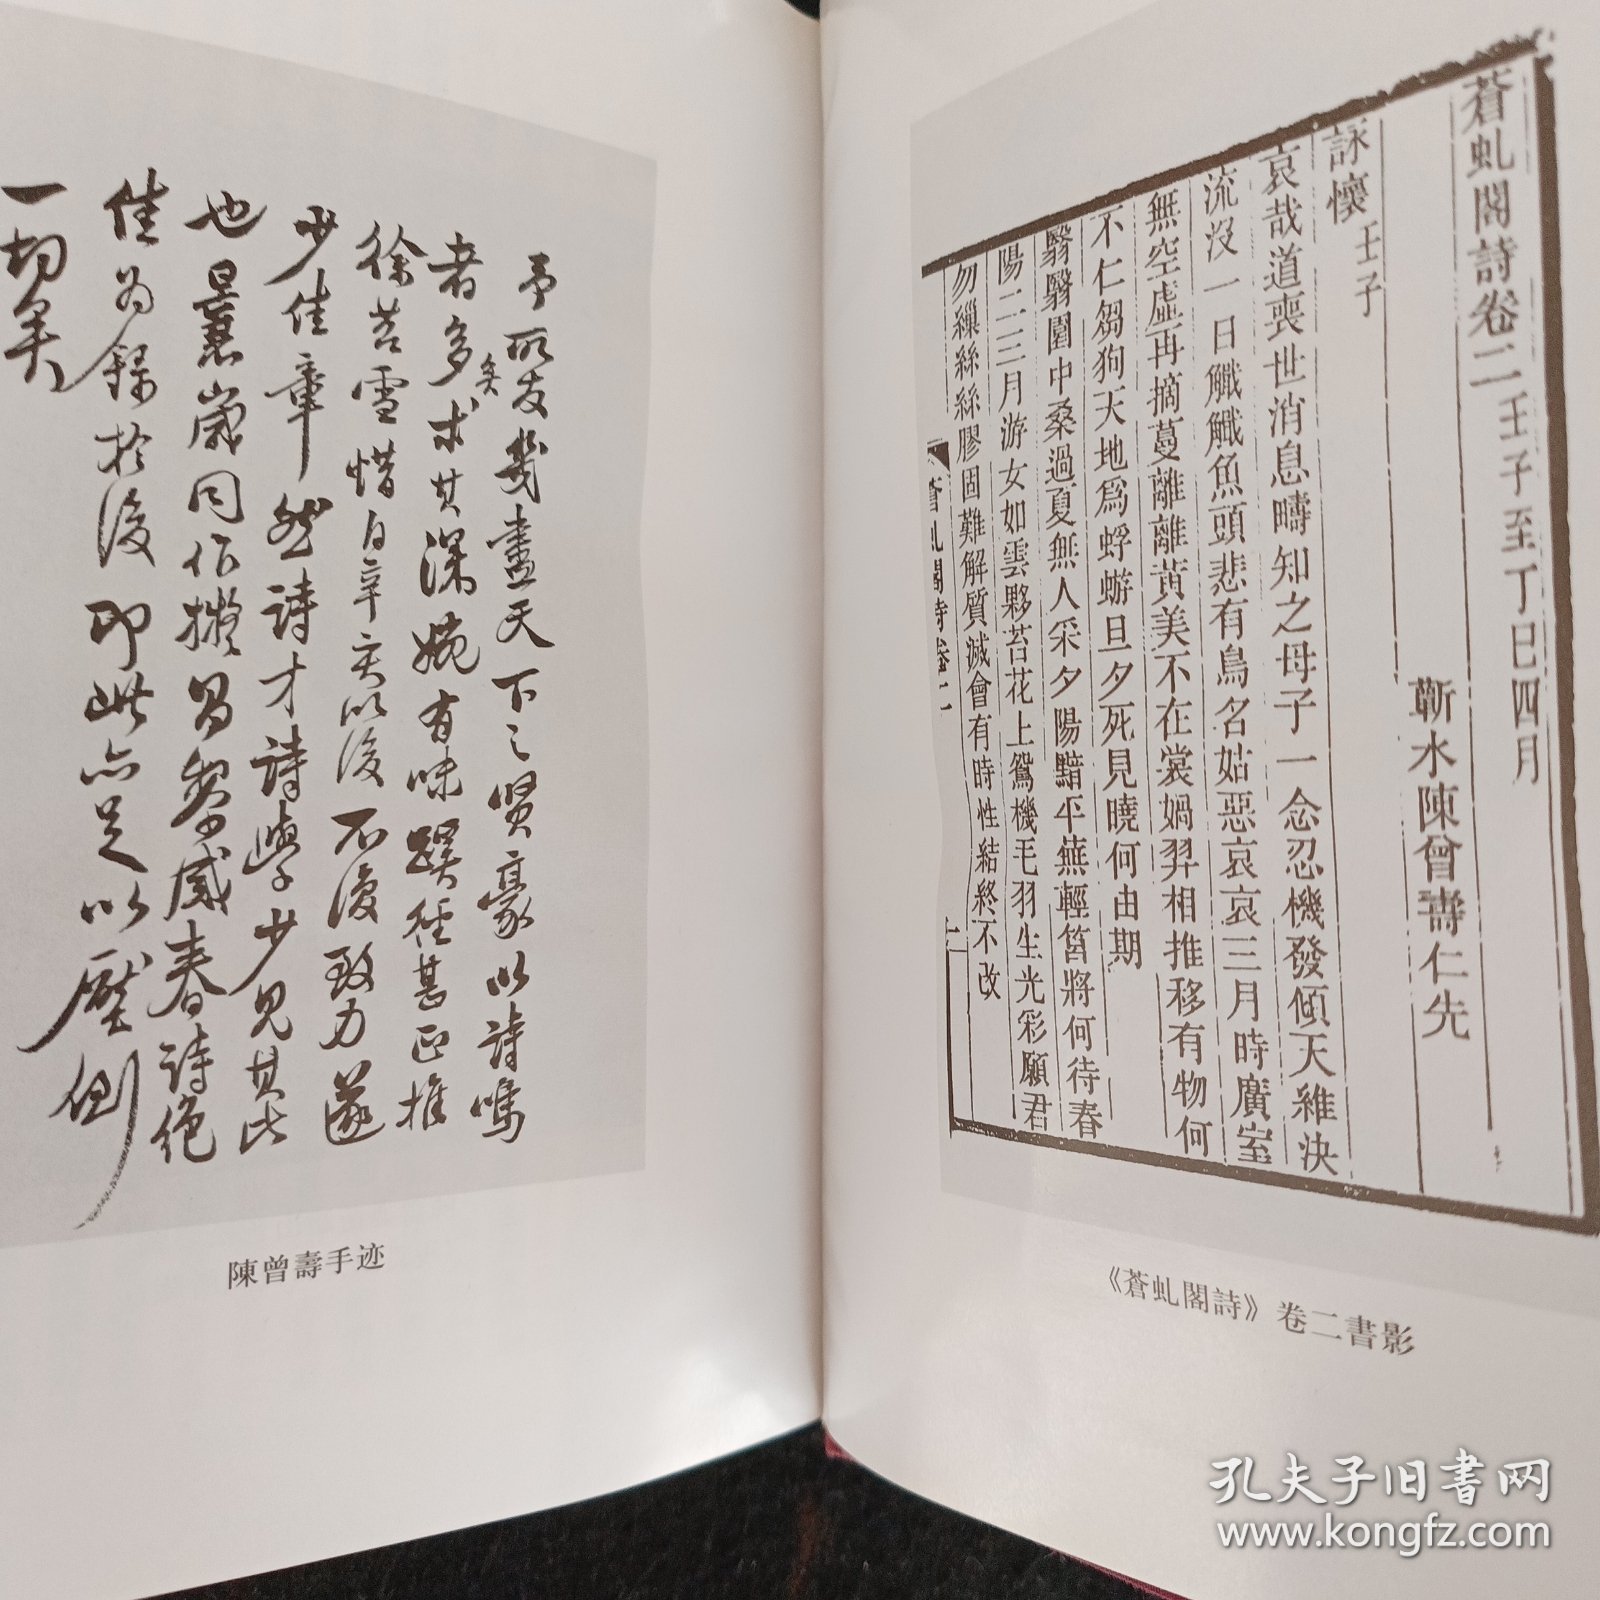 予所友幾盡天下之賢豪以詩鳴
者多矣求其深婉有味蹊徑甚正惟
徐苕雪惜自辛亥以後不復致力遂
少佳章然詩才詩學少見其比
也曩嵗同作擬昌黎感春詩絕
佳為錄於後即此亦足以壓倒
一切矣
陳曾壽手迹
蒼虬閣詩卷二 壬子至丁巳四月
蘄水陳曾壽仁先
詠懷 壬子
哀哉道喪世消息疇知之母子一念忍機發傾天維決
流沒一日魚頭悲有鳥名姑惡哀哀三月時廣室
無空虛再摘蔓離離黃美不在裳媧羿相推移有物何
不仁芻狗天地爲蜉蝣旦夕死見曉何由期
翳翳園中桑過夏無人采夕陽黯平蕪輕筥將何待春
陽二三月游女如雲夥苔花上鴛機毛羽生光彩願君
勿繅絲絲膠固難解質滅會有時性結終不改
蒼虬閣詩卷二
《蒼虬閣詩》卷二書影
孔夫子旧书网
www.kongfz.com